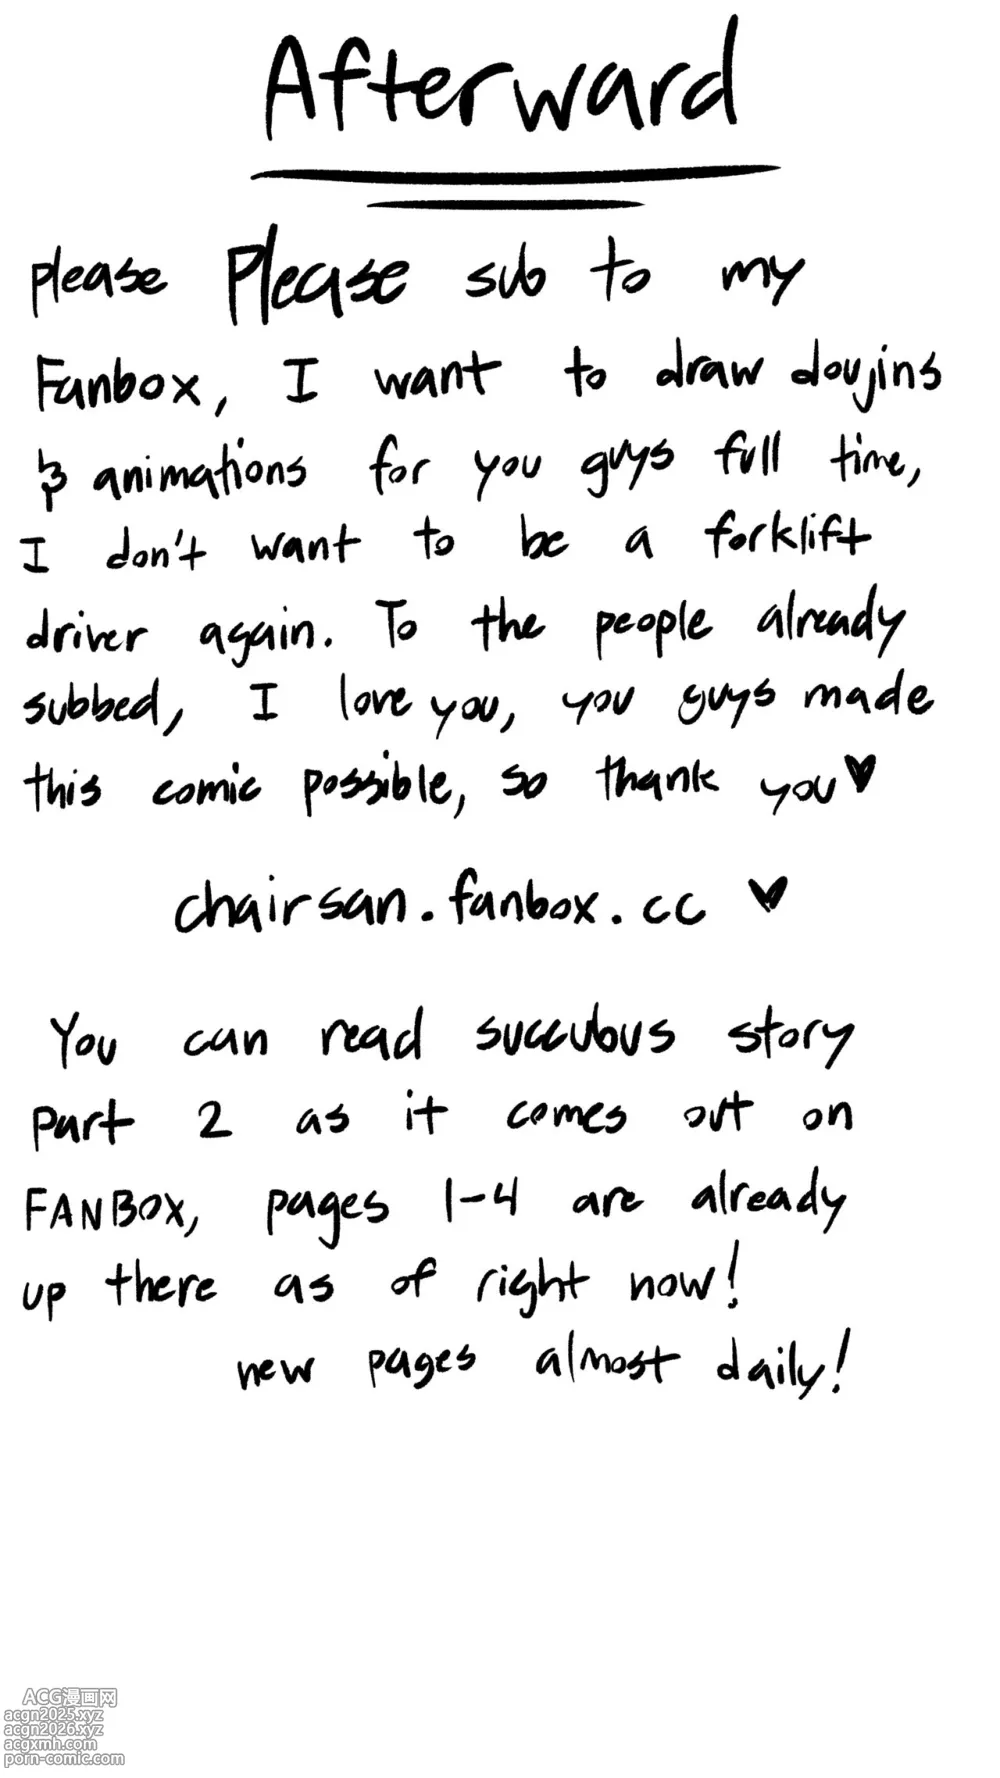 Afterward
please Please sub to my
Fanbox, I want to draw doujins
& animations for you guys full time,
I don't want to be a forklift
driver again. To the people already
subbed, I love you, you guys made
this comic possible, so thank you♥
chairsan.fanbox.cc ♥
You can read succubus story
Part 2 as it comes out on
FANBOX, pages 1-4 are already
up there as of right now!
new pages almost daily!
ACG漫画网
acgn2025.xyz
acgn2026.xyz
acgxmh.com
porn-comic.com